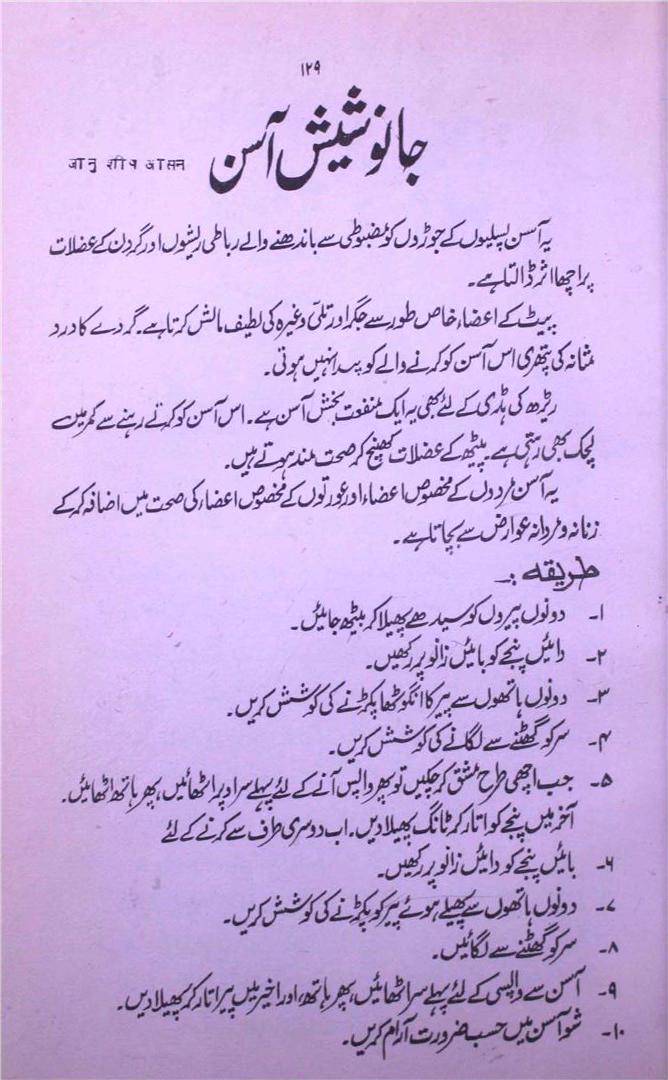 ۱۲۹
جانوشیش آسن
जानु शीष आसन
یہ آسن پسلیوں کے جوڑوں کو مضبوطی سے باندھنے والے رباطی ریشوں اور گردن کے عضلات
پر اچھا اثر ڈالتا ہے۔
پیٹ کے اعضاء خاص طور سے جگر اور تلّی وغیرہ کی لطیف مالش کرتا ہے۔ گردے کا درد
مثانہ کی پتھری اس آسن کو کرنے والے کو پیدا نہیں ہوتی۔
ریڑھ کی ہڈی کے لئے بھی یہ ایک منفعت بخش آسن ہے۔ اس آسن کو کرتے رہنے سے کمر میں
لچک بھی رہتی ہے۔ پیٹھ کے عضلات کھینچ کر صحت مند ہوتے ہیں۔
یہ آسن مردوں کے مخصوص اعضاء اور عورتوں کے مخصوص اعضاء کی صحت میں اضافہ کر کے
زنانہ و مردانہ عوارض سے بچاتا ہے۔
طریقہ :۔
۱۔ دونوں پیروں کو سیدھے پھیلا کر بیٹھ جائیں۔
۲۔ دائیں پنجے کو بائیں زانو پر رکھیں۔
۳۔ دونوں ہاتھوں سے پیر کا انگوٹھا پکڑنے کی کوشش کریں۔
۴۔ سر کو گھٹنے سے لگانے کی کوشش کریں۔
۵۔ جب اچھی طرح مشق کر چکیں تو پھر واپس آنے کے لئے پہلے سر اوپر اٹھائیں، پھر ہاتھ اٹھائیں۔
آخر میں پنجے کو اتار کر ٹانگ پھیلا دیں۔ اب دوسری طرف سے کرنے کے لئے
۶۔ بائیں پنجے کو دائیں زانو پر رکھیں۔
۷۔ دونوں ہاتھوں سے پھیلے ہوئے پیر کو پکڑنے کی کوشش کریں۔
۸۔ سر کو گھٹنے سے لگائیں۔
۹۔ آسن سے واپسی کے لئے پہلے سر اٹھائیں، پھر ہاتھ، اور اخیر میں پیر اتار کر پھیلا دیں۔
۱۰۔ شوآسن میں حسب ضرورت آرام کریں۔